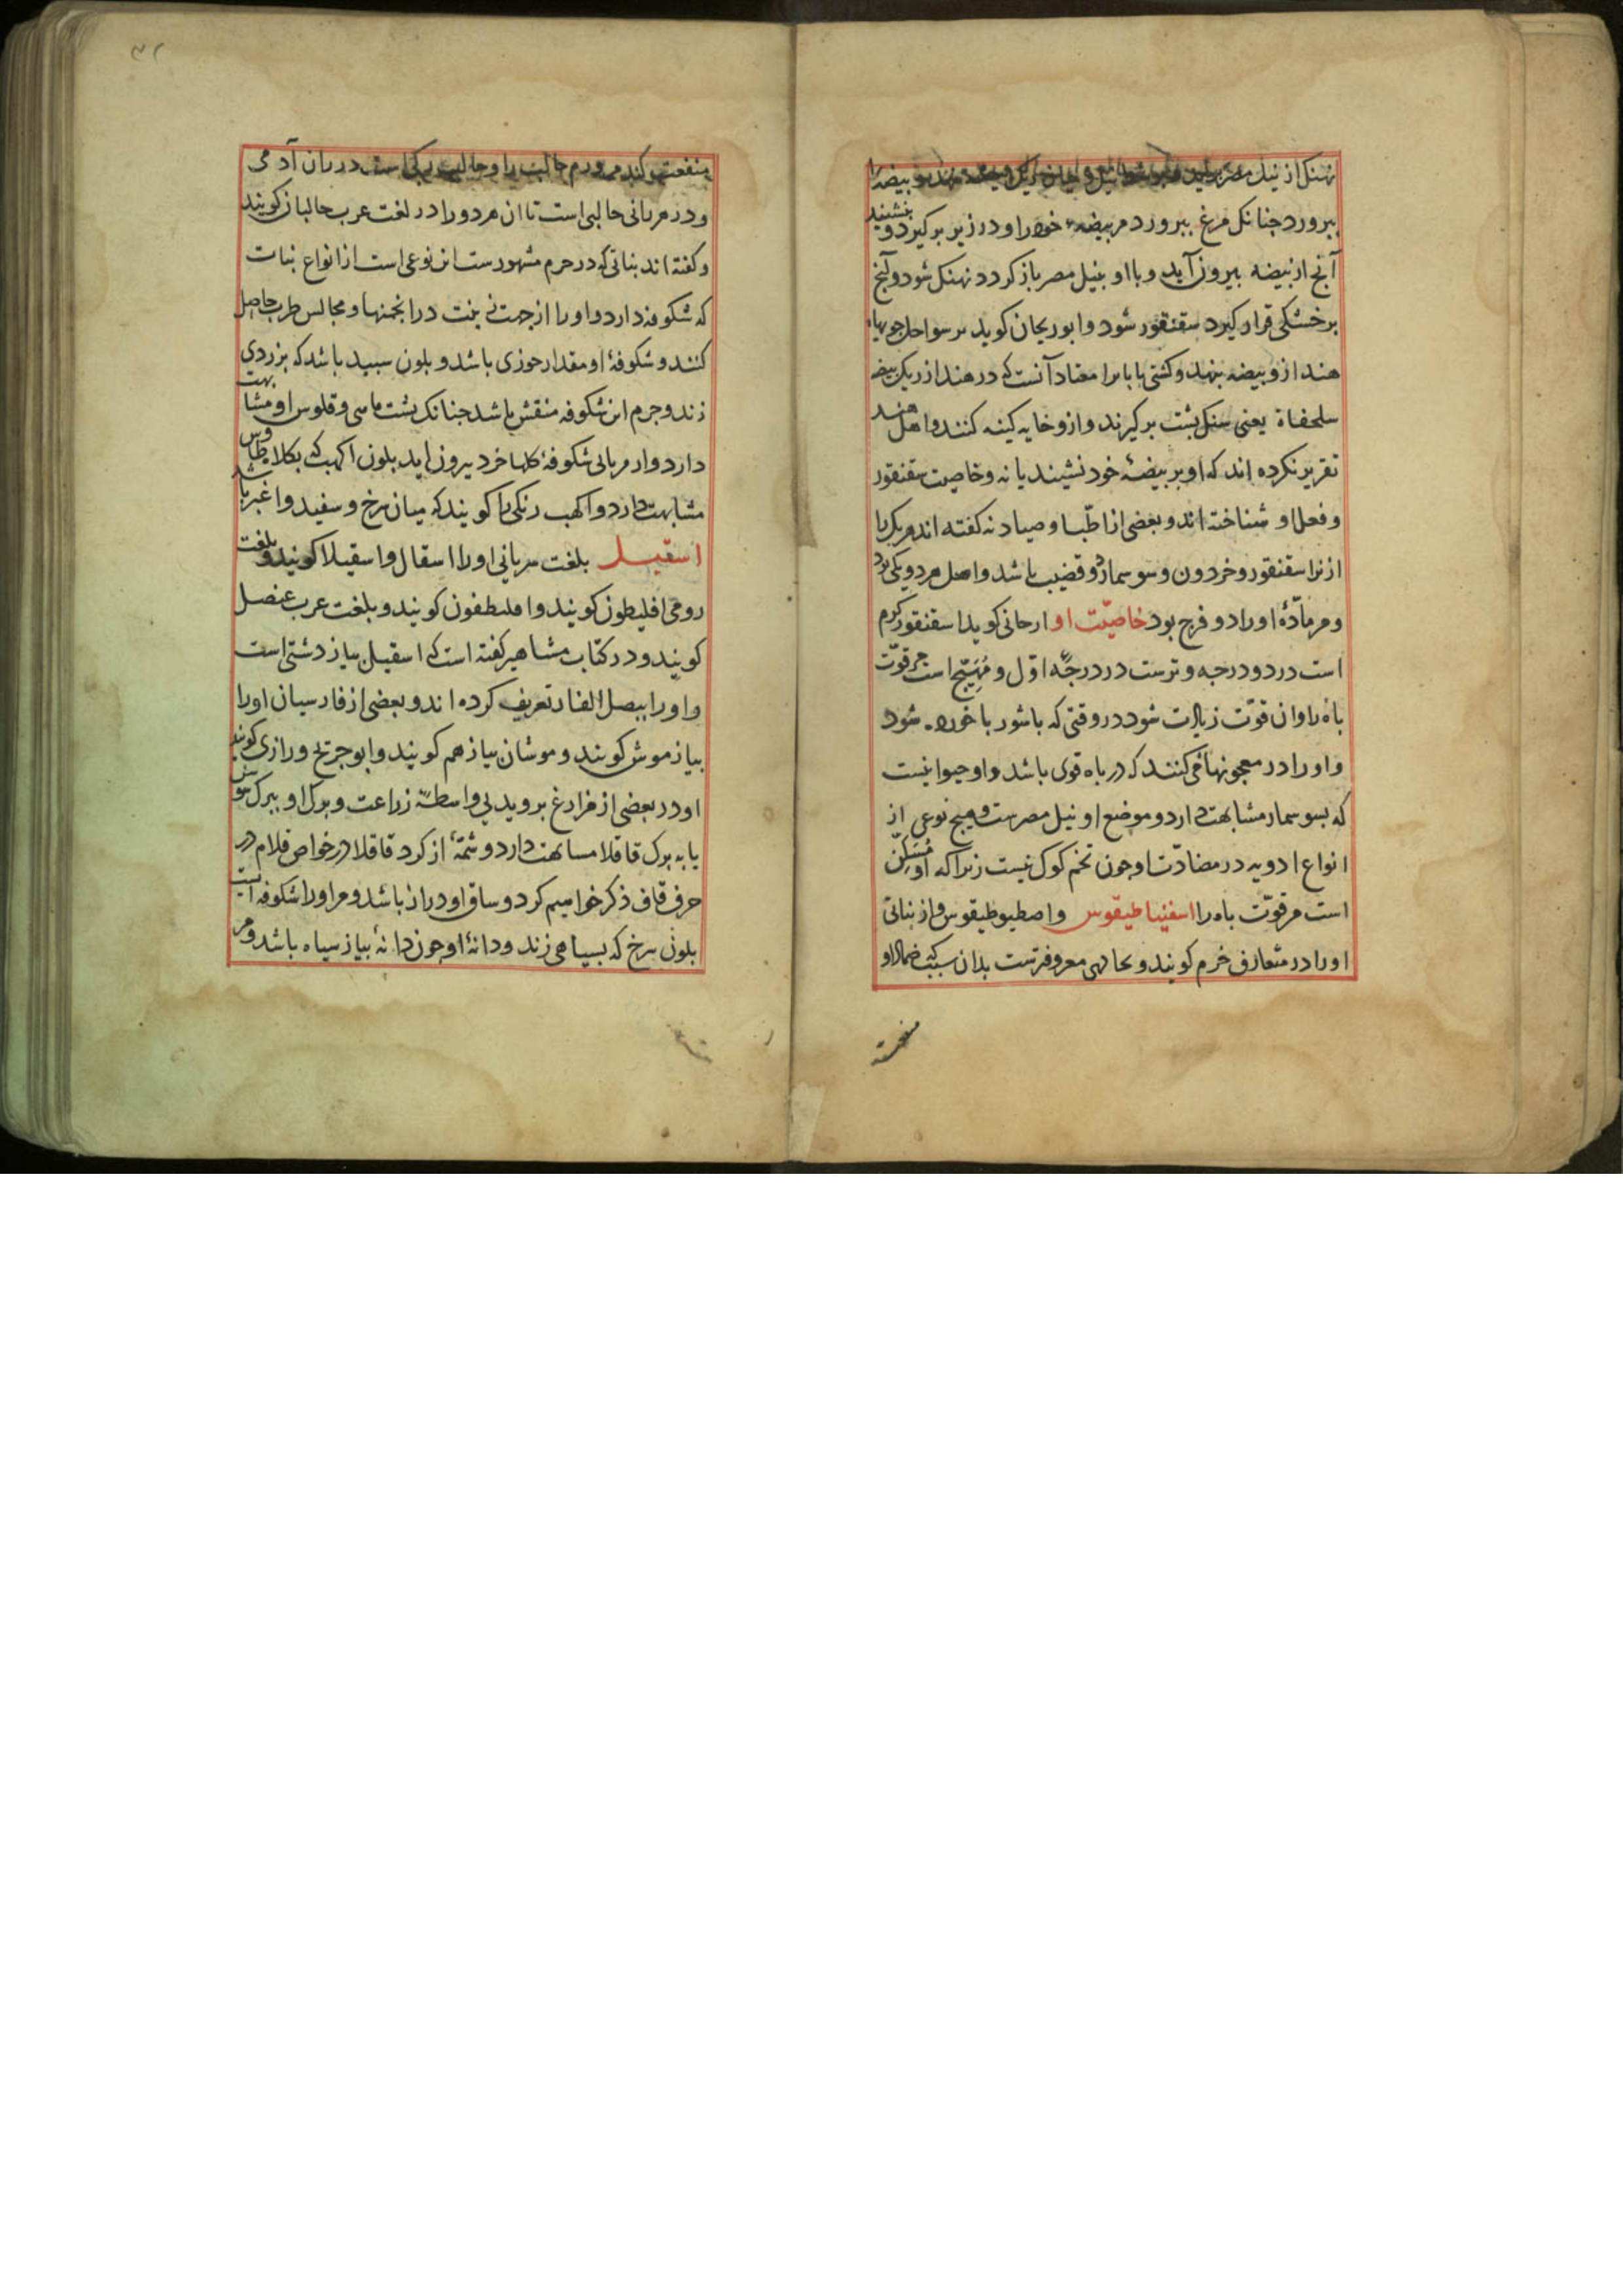 نهنک از نیل مصر بیضه
بپرورد جنانکل مرغ بپرورد مر بیضهٔ خود را و در زیر بر کیرد و بنشیند
آنج از بیضه بیرون آید و با او بنیل مصر باز کردد نهنک شود و آنج
بر خشکی قرار کیرد سقنقور شود و ابو ریحان کوید بر سواحل جویهاء
هند از و بیضه بنهد و کشتی بابانرا معتاد آنست که در هند از ریک بیضه
سلحفاة یعنی سنک بشت بر کیرند و ازو خایه کینه کنند و اهل هند
تقریر نکرده اند که او بر بیضهٔ خود نشیند یا نه و خاصیت سقنقور
و فعل او شناخته اند و بعضی از اطبا و صیادنه کفته اند مر یک را
از نر اسقنقور و خردون و سوسمار دو قضیب باشد و اصل هر دو یکی بود
و مر مادّهٔ او را دو فرج بود خاصیّت او ارحانی کوید اسقنقور کرم
است در دو درجه و ترست در درجهٔ اوّل و مُهَیّج است مر قوّت
باه را و ان قوّت زیادت شود در وقتی که با شور با خورده شود
و او را در معجونها می کنند که در باه قوی باشد و او حیوانیست
که بسوسمار مشابهت دارد و موضع او نیل مصرست و هیج نوعی از
انواع ادویه در مضادّت او جون تخم کوک نیست زیرا که او مُسَکِّن
است مر قوّت باه را اسفنیا طیقوس و اصطیوطیقوس و از بناتی
او را در متعارف خرم کویند و بحالبی معروفترست بدان سبب که ضماد او
منفعت
منفعت کند مر ورم حالب را و حالب رکی است در ران آدمی
و در هر رانی حالبی است تا ان هر دو را در لغت عرب حالبان کویند
و کفته اند بناتی که در حرم مشهورست ان نوعی است از انواع بنات
که شکوفه دارد و او را از جهت زینت در انجمنها و مجالس طرب حاصل
کنند و شکوفهٔ او مقدار جوزی باشد و بلون سبید باشد که بزردی
زند و جرم ان شکوفه منقش باشد جنانک بشت ماهی و فلوس او مشابهت
دارد و از میان شکوفه کلها خرد بیرون اید بلون اکهب که بکلاه طاوس
مشابهت دارد و اکهب رنکی را کویند که میان سرخ و سفید و اغبر باشد
اسقیل بلغت سریانی او را اسقال و اسقیلا کویند و بلغت
رومی افلیطون کویند و افلیطفون کویند و بلغت عرب عنصل
کویند و در کتاب مشاهیر کفته است که اسقیل بیاز دشتی است
و او را ببصل الفار تعریف کرده اند و بعضی از فارسیان او را
بیاز موش کویند و موشان بیاز هم کویند و ابو جریح و رازی کویند
او در بعضی از مزارع بروید بی واسطهٔ زراعت و برک او ببرک سوسن
یا به برک قاقلا مشابهت دارد و شمّهٔ از کرد قاقلا در خواص قلام در
حرف قاف ذکر خواهیم کرد و ساق او دراز باشد و مر او را شکوفه ایست
بلون سرخ که بسیاهی زند و دانهٔ او جون دانهٔ بیاز سیاه باشد و مر